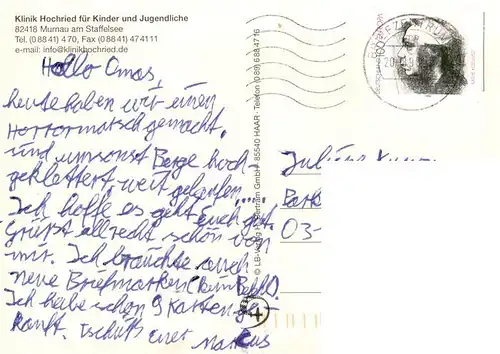 Klinik Hochried für Kinder und Jugendliche
82418 Murnau am Staffelsee
Tel. (0 88 41) 4 70, Fax (0 88 41) 47 41 11
e-mail: info@klinikhochried.de
Hallo Omas,
heute haben wir einen
Horrormatsch gemacht,
sind umsonst Berge hoch-
geklettert, weit gelaufen, ....
Ich hoffe es geht euch gut.
Grüßt all recht schön von
mir. Ich bräuchte auch
neue Briefmarken
Ich habe schon 9 Karten ge-
kauft. Tschüß euer Markus
© LB-Verlag GmbH · 85540 HAAR · Telefon (089) 688 47 16
03-